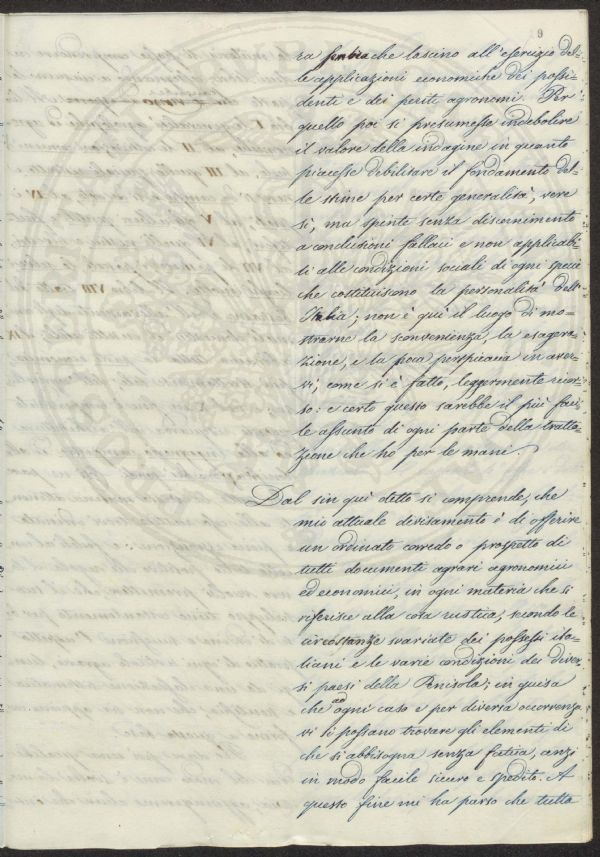 9
ra sembra che lascino all'esercizio del-
le applicazioni economiche dei possi-
denti e dei periti agronomi. Per
quello poi si presumesse indebolire
il valore della indagine in quanto
piacesse debilitare il fondamento del-
le stime per certe generalità, vere
sì, ma spinte senza discernimento
a conclusioni fallaci e non applicabi-
li alle condizioni sociali di ogni specie
che costituiscono la personalità dell'
Italia; non è quì il luogo di mo-
strarne la sconvenienza, la esagera-
zione, e la poca perspicacia in aver-
vi, come si è fatto, leggermente ricor-
so: e certo questo sarebbe il più faci-
le assunto di ogni parte della tratta-
zione che ho per le mani.
Dal sin quì detto si comprende, che
mio attuale divisamento è di offerire
un ordinato corredo o prospetto di
tutti documenti agrari agronomici
ed economici, in ogni materia che si
riferisce alla cosa rustica, secondo le
circostanze svariate dei possessi ita-
liani e le varie condizioni dei diver-
si paesi della Penisola; in guisa
che ad ogni caso e per diversa occorrenza
vi si possano trovare gli elementi di
che si abbisogna senza fatica, anzi
in modo facile sicuro e spedito. A
questo fine mi ha parso che tutto